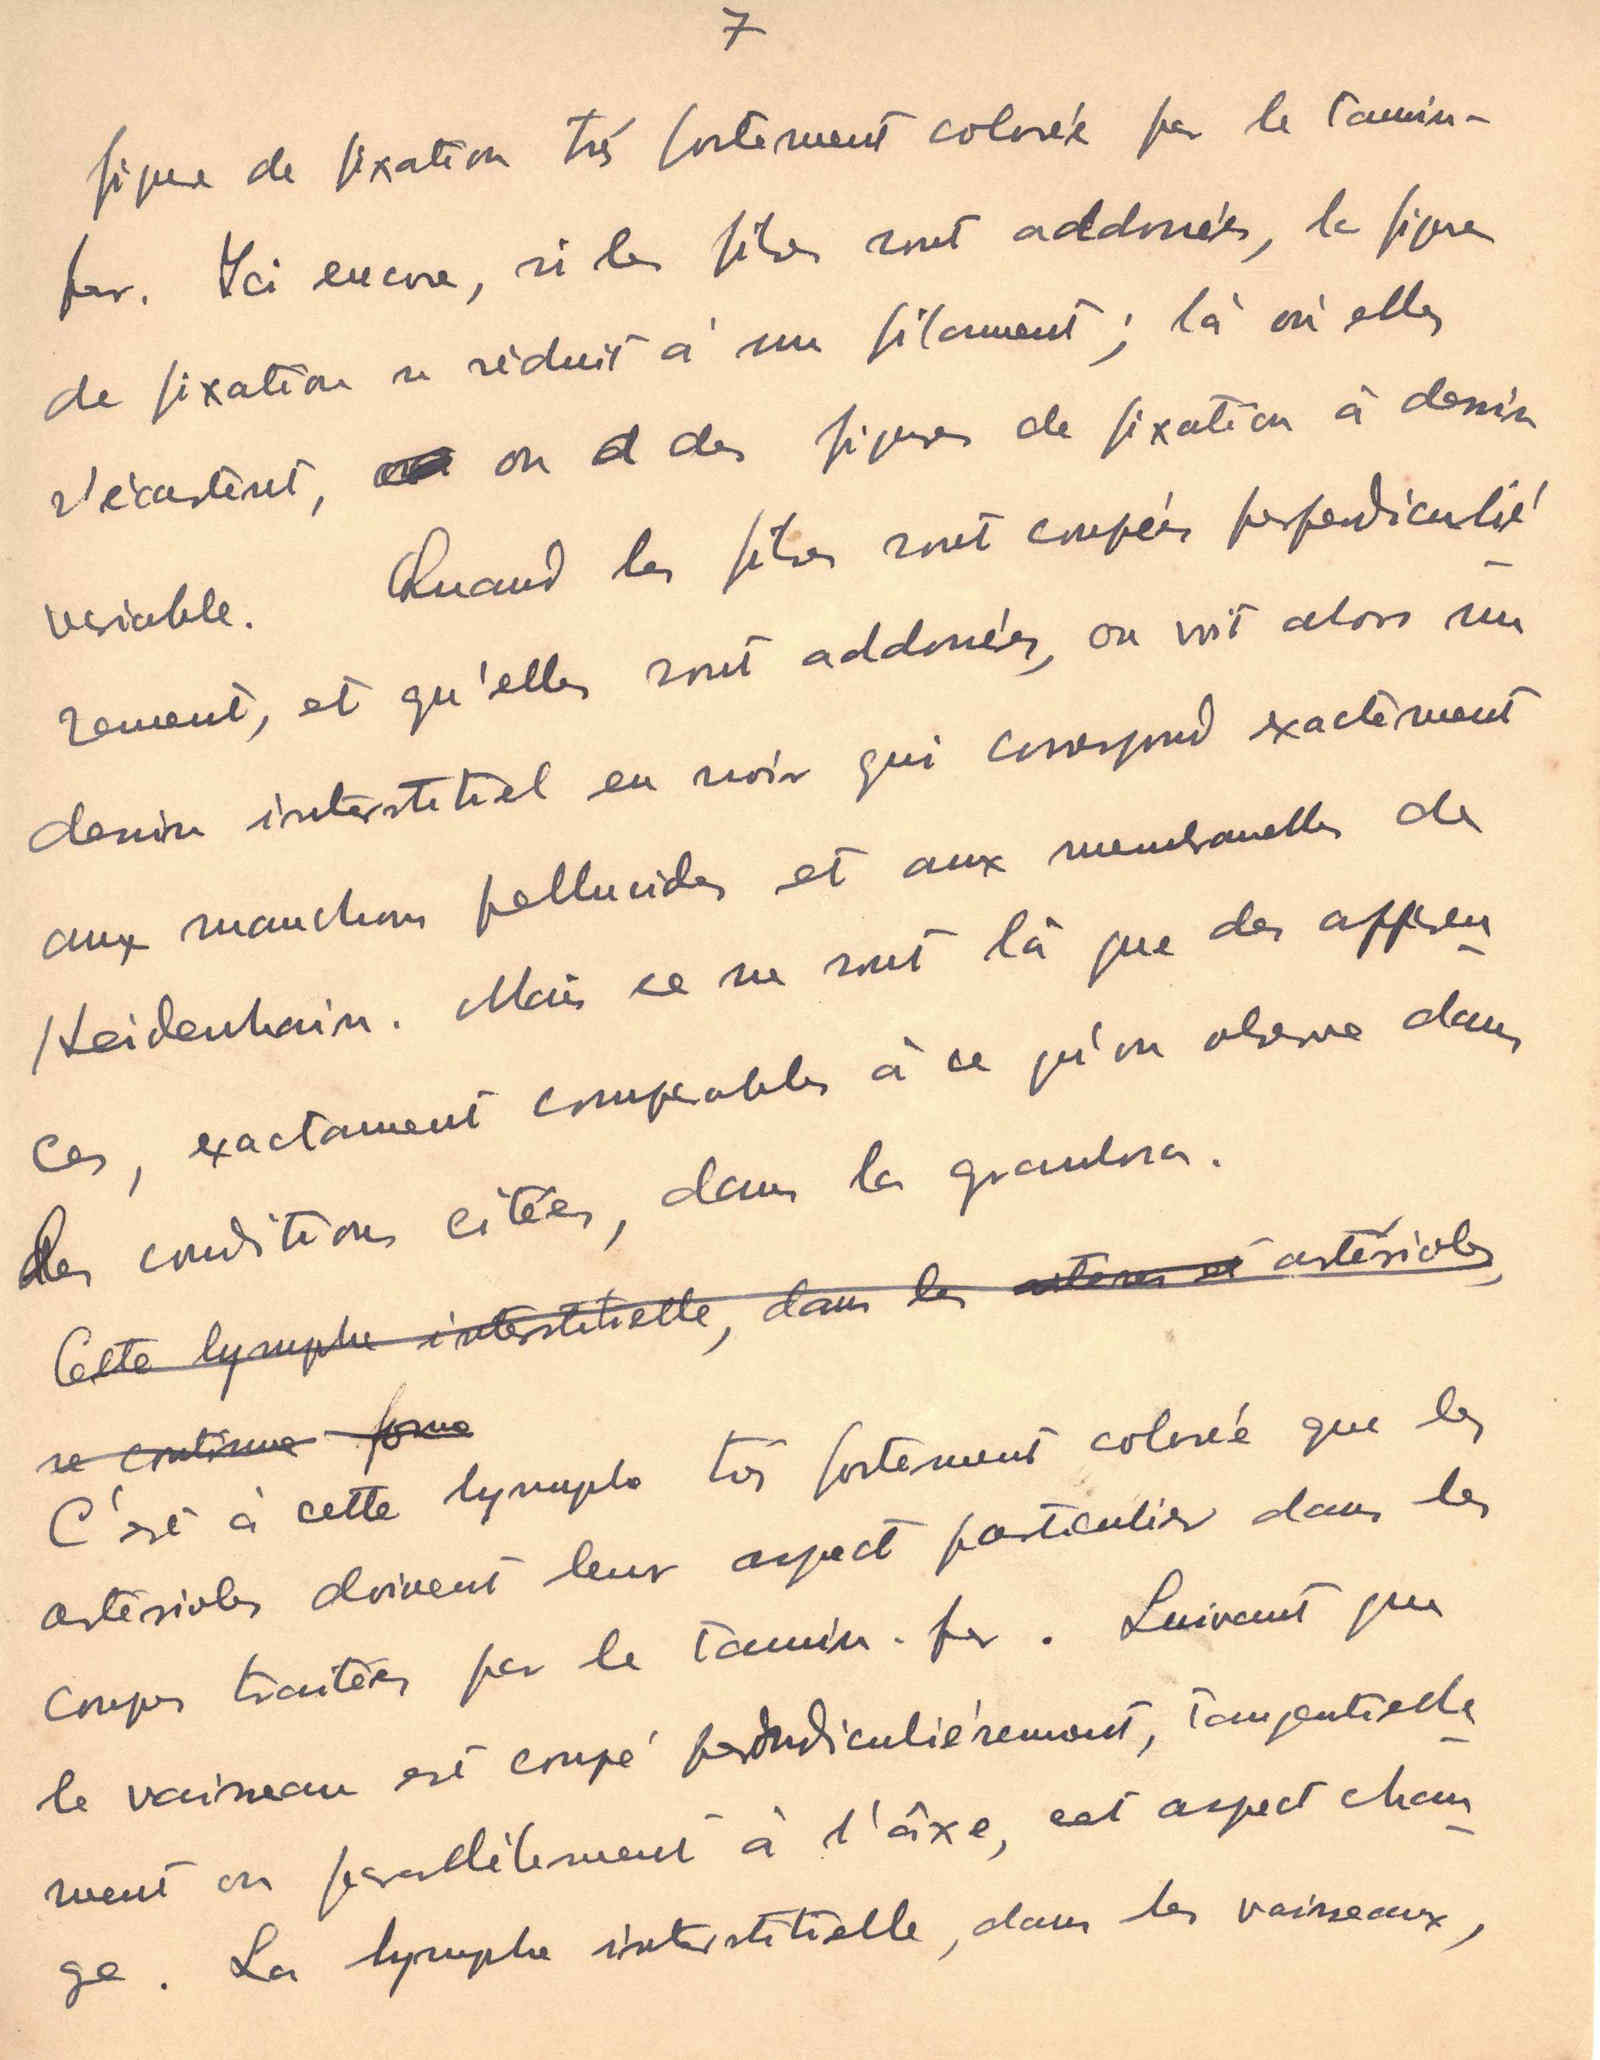 7
figure de fixation très fortement colorée par le tannin-
fer. Ici encore, si les fibres sont addossées, la figure
de fixation se réduit à un filament; là où elles
s'écartent, on a des figures de fixation à dessin
variable. Quand les fibres sont coupées perpendiculié
rement, et qu'elles sont addossées, on voit alors un
dessin interstitiel en noir qui correspond exactement
aux manchons pellucides et aux membranelles de
Heidenhain. Mais ce ne sont là que des apparen
ces, exactament comparables à ce qu'on observe dans
des conditions citées, dans la granulosa.
Cette lymphe interstitielle, dans les artères et artérioles,
se continue forme
C'est à cette lymphe très fortement colorée que les
artérioles doivent leur aspect particulier dans les
coupes traitées par le tannin-fer. Suivant que
le vaisseau est coupé perpendiculiérement, tangentielle
ment ou parallèlement à l'âxe, cet aspect chan
ge. La lymphe interstitielle, dans les vaisseaux,